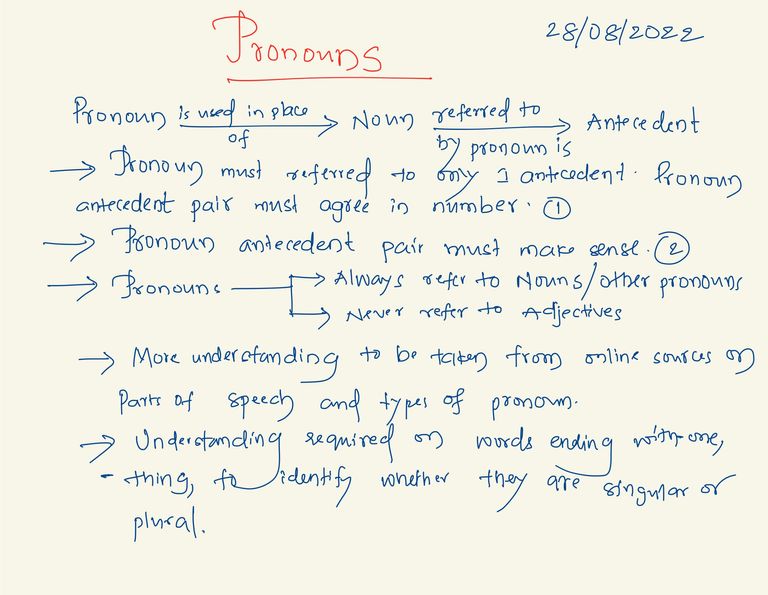 Pronouns
28/08/2022
Pronoun is used in place of → Noun referred to by pronoun is → Antecedent
→ Pronoun must referred to only 1 antecedent. Pronoun
antecedent pair must agree in number. ①
→ Pronoun antecedent pair must make sense. ②
→ Pronouns → Always refer to Nouns/other pronouns
→ Never refer to Adjectives
→ More understanding to be taken from online sources on
Parts of speech and types of pronoun.
→ Understanding required on words ending with -one,
- thing, to identify whether they are singular or
plural.